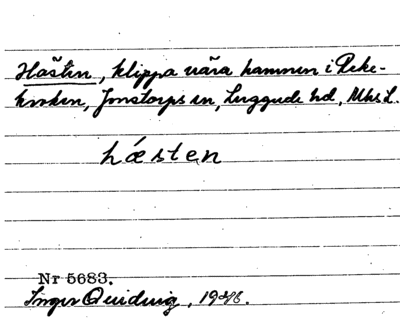 Hästen, klippa nära hamnen i Reke-
kroken, Jonstorps sn, Luggude hd, Mhs L.
hæ̀sten
Nr 5683.
Inger Quiding, 1946.